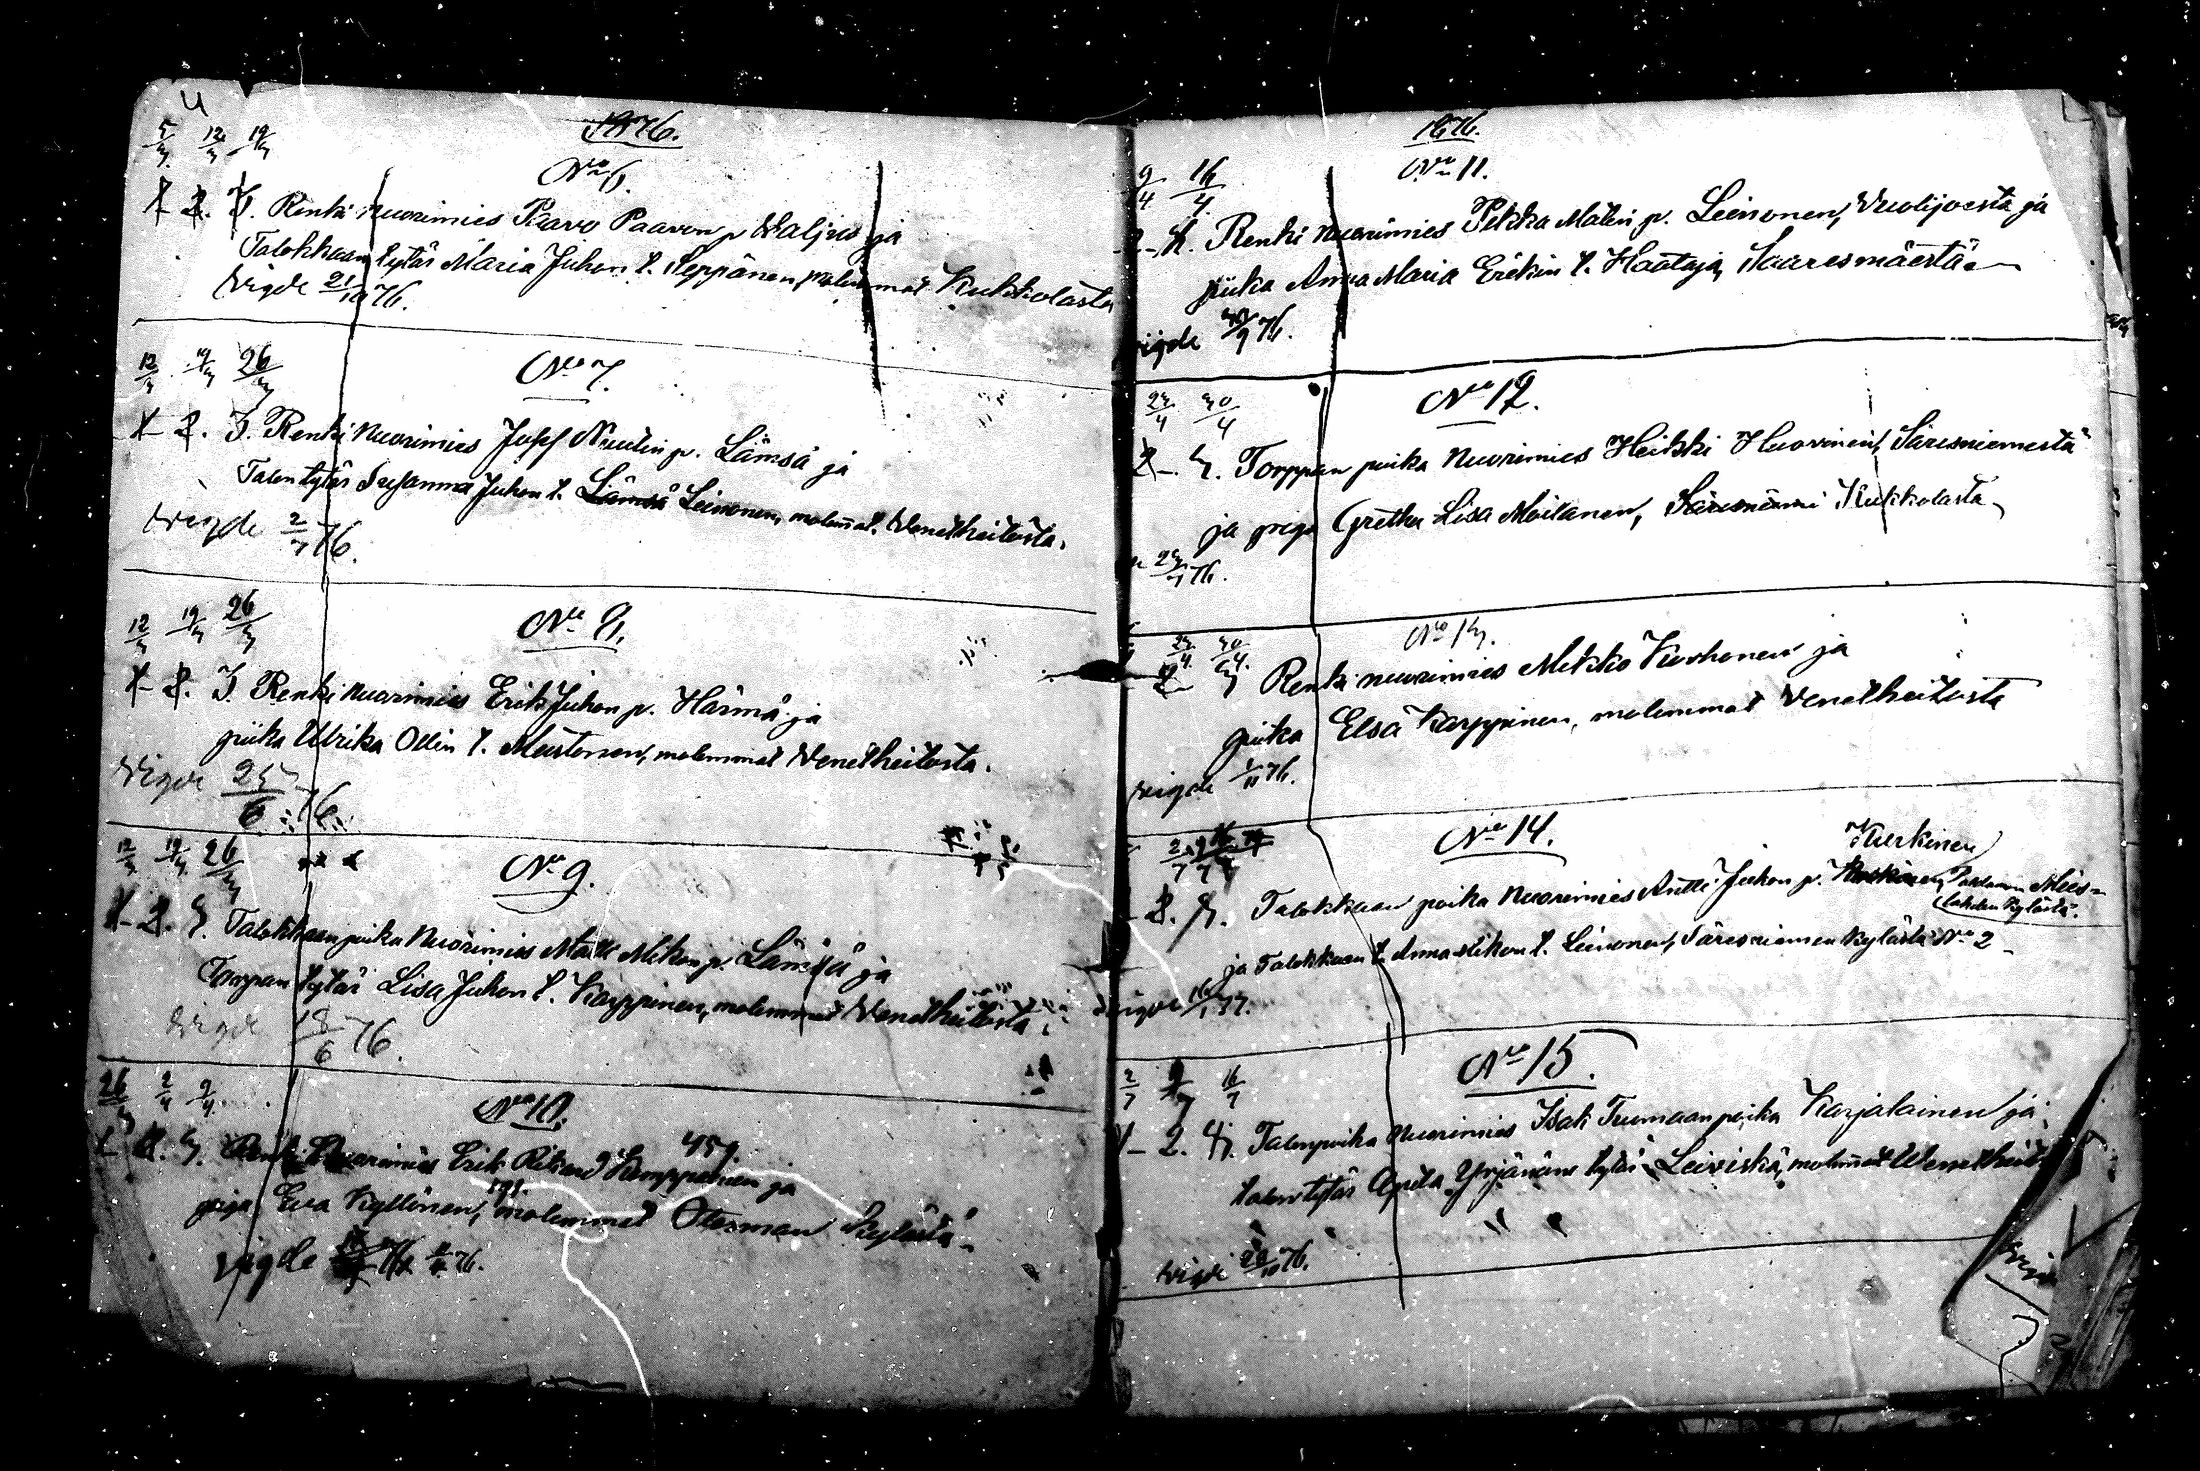 4
1876.
5/3 12/3 19/3
No 6.
1. 2. 3. Renki nuorimies Paavo Paavon p. Waljus ja
Talokkaan tytär Maria Juhon t. Seppänen, molemmat Kukkolasta
Vigde 21/10 76.
12/3 19/3 26/3
No 7.
1- 2. 3. Renki Nuorimies Josef Nuutin p. Lämsä ja
Talon tytär Susanna Juhon t. Lämsä Leinonen, molemat Wenetheitosta.
Wigde 2/7 76.
12/3 19/3 26/3
No 8.
1- 2. 3 Renki Nuorimies Erik Juhon p. Härmä ja
piika Ulrika Ollin t. Mustonen, molemmat Wenetheitosta.
Vigde 25/6 76.
12/3 19/3 26/3
No 9.
1- 2. 3. Talokkaan poika Nuorimies Matti Mikon p. Lämsä ja
Torpan tytär Lisa Juhon t. Karppinen, molemmat Wenetheitosta.
Vigde 18/6 76.
26/3 2/4 9/4
No 10.
1- 2. 3. Renki Nuorimies Erik Rikard Karppinen ja
459.
piga Eva Kyllönen, molemmat Oterman kylästä.
Vigde 76.
1876.
9/4 16/4
No 11.
2- 3. Renki Nuorimies Pekka Matin p. Leinonen, Vuolijoesta ja
piika Anna Maria Erikin t. Haataja, Saaresmäestä
vigde 76.
23/4 30/4
No 12.
2- 3. Torppan poika Nuorimies Heikki Huovinen, Säresniemestä
ja piga Gretha Lisa Moilanen, Säresniemi Kukkolasta
76.
23/4 30/4
No 13.
2 3 Renki nuorimies Mikko Korhonen ja
piika Elsa Karppinen, molemmat Wenetheitosta
vigde 1/11 76.
No 14.
Kurkinen
2. 3. Talokkaan poika Nuorimies Antti Juhon p. Paldamon Mies-
lahden kylästä.
ja Talokkaan t. Anna Mikon t. Leinonen, Säresniemen kylästä No 2
vigde 77.
2/7 9/7 16/7
No 15.
1- 2. 3. Talonpoika Nuorimies Isak Tuomaanpoika Karjalainen ja
talon tytär Agata Yrjänän tytär Leiviskä, molemat Wenetheit
vigde 76.